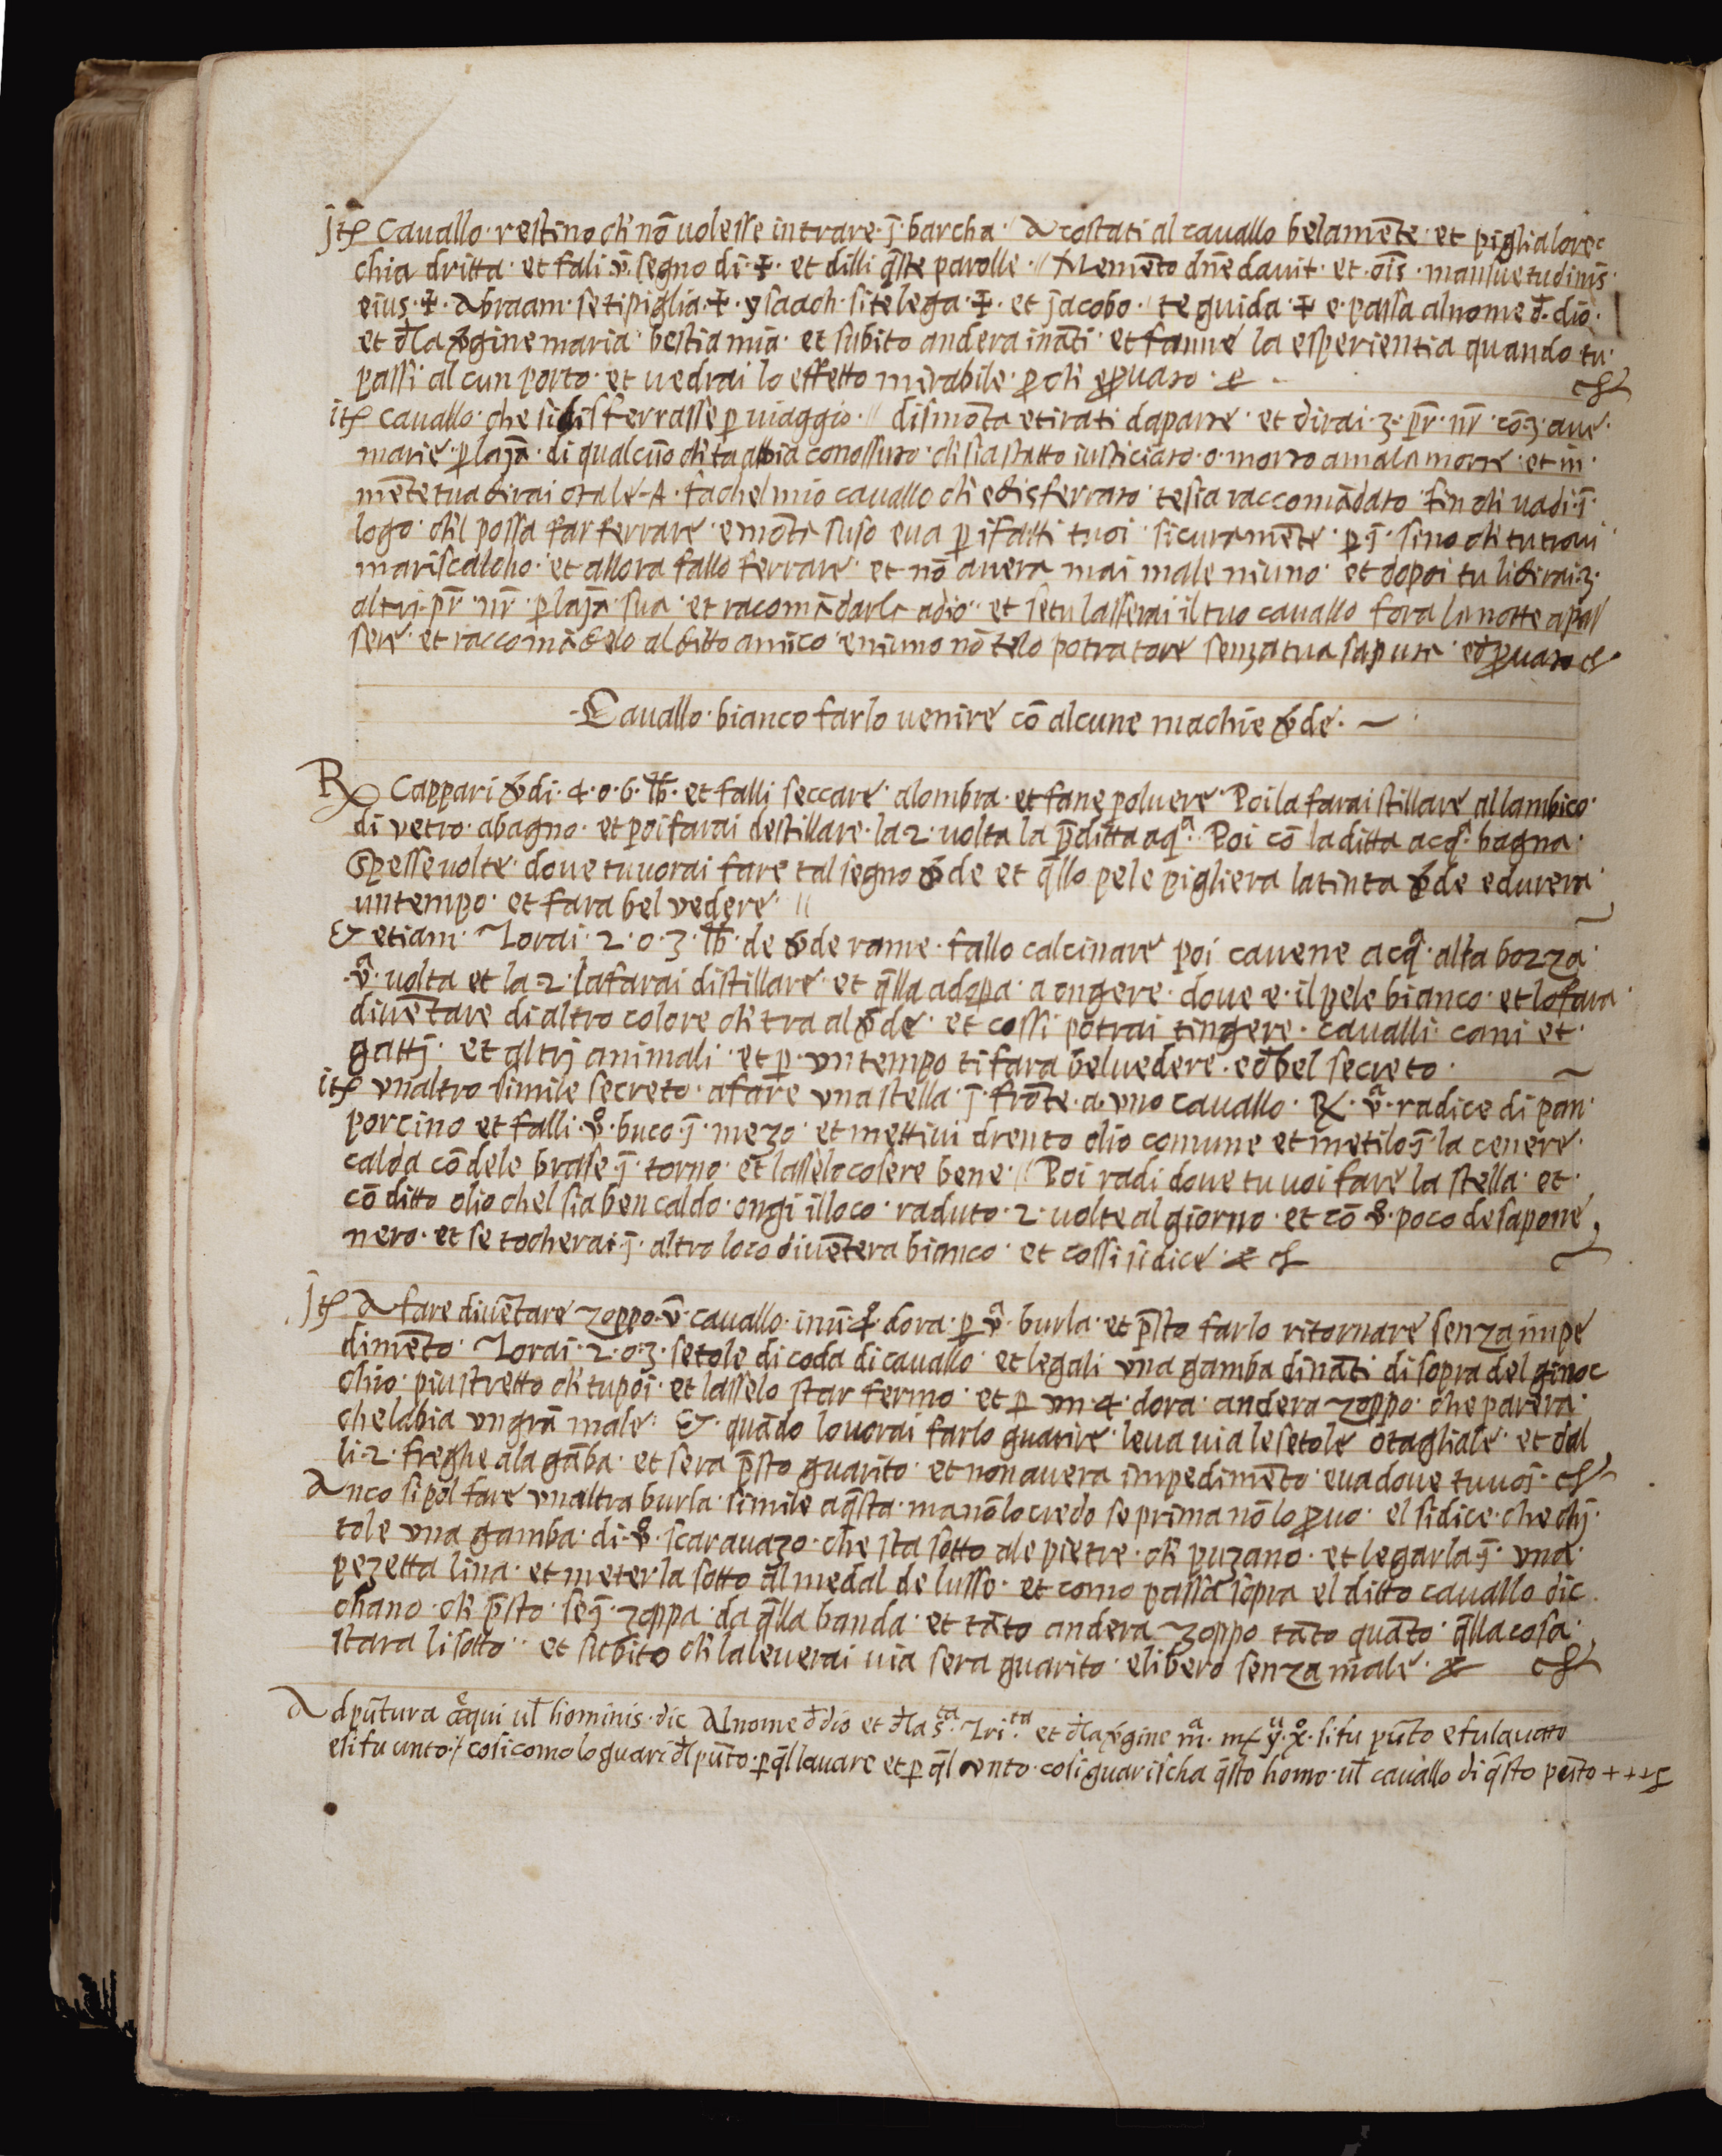 Jtē Cauallo · restino chi nō uolesse intrare · ī · barcha · // Acostati al cauallo belamēte · et piglia lorec
chia dritta · et fali · ū · segno di · ✠ · et dilli q̄ste parolle · // Memēto dn̄e dauit · et · oīs · mansuetudinis ·
eius · ✠ · Abraam · se ti piglia · ✠ · ysaach · si te lega · ✠ · et Jacobo · te guida · ✠ · e · passa al nome đ · dio ·
et đla v̄gine maria · bestia mia · et subito andera ināti · et fanne la esperientia quando tu ·
passi · alcun porto · et uedrai lo effetto mirabile · ꝑ chi ꝓuato · e ·
itē cauallo · che si disferrasse ꝑ uiaggio · // dismōta e tirati da parte · et dirai · 3 · pr̄ · nr̄ · cō · 3 · aue ·
marie · ꝑ laīa · di qualcūo chi ta abbia conossuto · chi sia statto iusticiato · o · morto a mala morte · et in ·
mēte tua dirai o tale · A · fa chel mio cauallo chi e disferrato · te sia raccomādato · fin chi uadi · ī ·
logo · chil possa far ferrare · e mōta suso e ua ꝑ i fatti tuoi · sicuramēte · ꝑ ī · sino chi tu troui ·
mariscalcho · et allora fallo ferrare · et nō auera mai male niuno · et dopoi tu li dirai · 3 ·
altri · pr̄ · nr̄ · ꝑ laīa · sua · et racomādarla a dio · et se tu lasserai il tuo cauallo fora la notte a pas
sere · et raccomādelo al ditto amico e niuno nō telo potra tore senza tua saputa · ed ꝓuato
· Cauallo · bianco farlo uenire cō alcune machie v̄de · ~
℞ Cappari v̄di · 4 · o · 6 · lb · et falli seccare · alombra · et fane poluere · Poi la farai stillare al lambico ·
di vetro · a bagno · et poi farai destillare · la 2 · uolta la p̄ditta aqᵃ · Poi cō la ditta acqᵃ · bagna ·
Spesse uolte · doue tu uorai fare tal segno v̄de et q̄llo pele pigliera la tinta v̄de e durera ·
un tempo · et fara bel vedere · //
& etiam · Torai · 2 · o · 3 · lb · de v̄de rame · fallo calcinare poi cauene acqᵃ · alta bozza ·
· vᵃ · uolta et la · 2 · la farai distillare · et q̄lla adopa · a ongere · doue · e · il pele bianco · et lo fara ·
diuētare di altro colore chi tra al v̄de · et cossi potrai tingere · caualli · cani et ·
gattj · et altrj animali · et ꝑ · vn tempo ti fara bel uedere · e đ bel secreto ·
itē vnaltro simile secreto · a fare vna stella · ī · frōte · a · vno cauallo · ℞ · vᵃ · radice di pan ·
porcino et falli · vᵒ · buco · ī · mezo · et mettiui drento olio comune et metilo ī · la cenere ·
calda cō dele brase ī · torno · et lasselo cosere bene · // Poi radi doue tu uoi fare la stella · et ·
cō ditto olio chel sia ben caldo · ongi il loco · raduto · 2 · uolte al giorno · et cō · vᵒ · poco de sapone
nero · et se tocherai ī · altro loco diuētera bianco · et cossi si dice · e
Jtē A fare diuētare zoppo · ū · cauallo · in ū · 4ᵒ · dora · ꝑ · vᵃ · burla · et p̄sto farlo ritornare senza impe
dimēto · Torai · 2 · o · 3 · setole di coda di cauallo · et legali vna gamba dināti di sopra del ginoc
chio · piu stretto chi tu poi · et lasselo star fermo · et ꝑ vn · 4 · dora · andera zoppo · che parera ·
che labia vn grā male · & · quādo lo uorai farlo guarire · leua uia le setole o tagliale · et dal
li · 2 · freghe ala gāba · et sera p̄sto guarito · et non auera impedimēto · e ua doue tu uoi ·
Anco si pol fare vnaltra burla · simile a q̄sta · ma nō lo credo se prima nō lo ꝓuo · el si dice · che chj ·
tole vna gamba · di · vᵒ · scarauazo · che sta sotto ale pietre · chi puzano · et legarla ī · vna ·
pezetta lina · et meterla sotto al medal de lusso · et como passa sopra el ditto cauallo dic
chano · chi p̄sto · se ī · zoppa · da q̄lla banda · et tāto andera zoppo tāto quāto · q̄lla cosa ·
stara li sotto · et subito chi la leuerai uia sera guarito · e libero senza male · e
Ad pūtura eq̄ui ul̄ hominis · dic Al nome đ dio et đla s̄ᵗᵃ · Triᵗᵃ · et đla v̄gine mᵃ · si fu pūto e fu lauatto
e si fu unto · / cosi como lo guari đl pūto · ꝑ q̄l lauare et ꝑ q̄l onto · cosi guarischa q̄sto homo · ul̄ cauallo di q̄sto pūto + + +